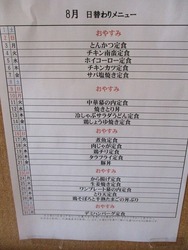 8月 日替わりメニュー
おやすみ
とんかつ定食
チキン南蛮定食
ホイコーロー定食
チキンカツ定食
サバ塩焼き定食
おやすみ
中華幕の内定食
焼きとり丼
冷しゃぶサラダうどん定食
鶏しょうゆ焼き定食
おやすみ
煮魚定食
肉じゃが定食
鶏チリ定食
タラフライ定食
豚丼
おやすみ
から揚げ定食
生姜焼き定食
ワンプレート幕の内定食
とり天定食
鶏そぼろと半熟たまごの丼ぶり
おやすみ